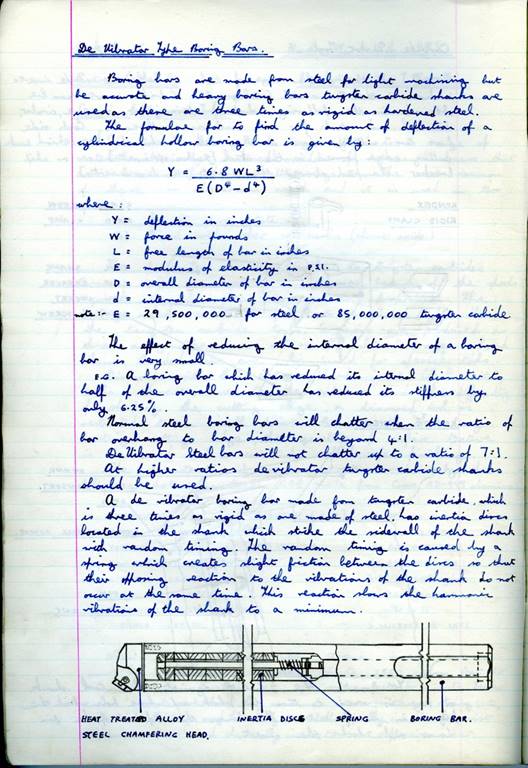 De Vibrator Type Boring Bars.
Boring bars are made from steel for light machining but
be accurate and heavy boring bars tungsten carbide shanks are
used as there are three times as rigid as hardened steel.
The formulae for to find the amount of deflection of a
cylindrical hollow boring bar is given by:
Y = 6.8 WL³
E(D⁴-d⁴)
where:
Y = deflection in inches
W = force in pounds
L = free length of bar in inches
E = modulus of elasticity in P.S.I.
D = overall diameter of bar in inches
d = internal diameter of bar in inches
note:- E = 29,500,000 for steel or 85,000,000 tungsten carbide
The effect of reducing the internal diameter of a boring
bar is very small.
e.g. A boring bar which has reduced its internal diameter to
half of the overall diameter has reduced its stiffness by
only 6.25%.
Normal steel boring bars will chatter when the ratio of
bar overhang to bar diameter is beyond 4:1.
De Vibrator Steel bars will not chatter up to a ratio of 7:1.
At higher ratios de vibrator tungsten carbide shanks
should be used.
A de vibrator boring bar made from tungsten carbide, which
is three times as rigid as one made of steel, has inertia discs
located in the shank which strike the sidewall of the shank
with random timing. The random timing is caused by a
spring which creates slight friction between the discs so that
their opposing reaction to the vibrations of the shank do not
occur at the same time. This reaction slows the harmonic
vibrations of the shank to a minimum.
HEAT TREATED ALLOY
STEEL CHAMFERING HEAD.
INERTIA DISCS
SPRING
BORING BAR.